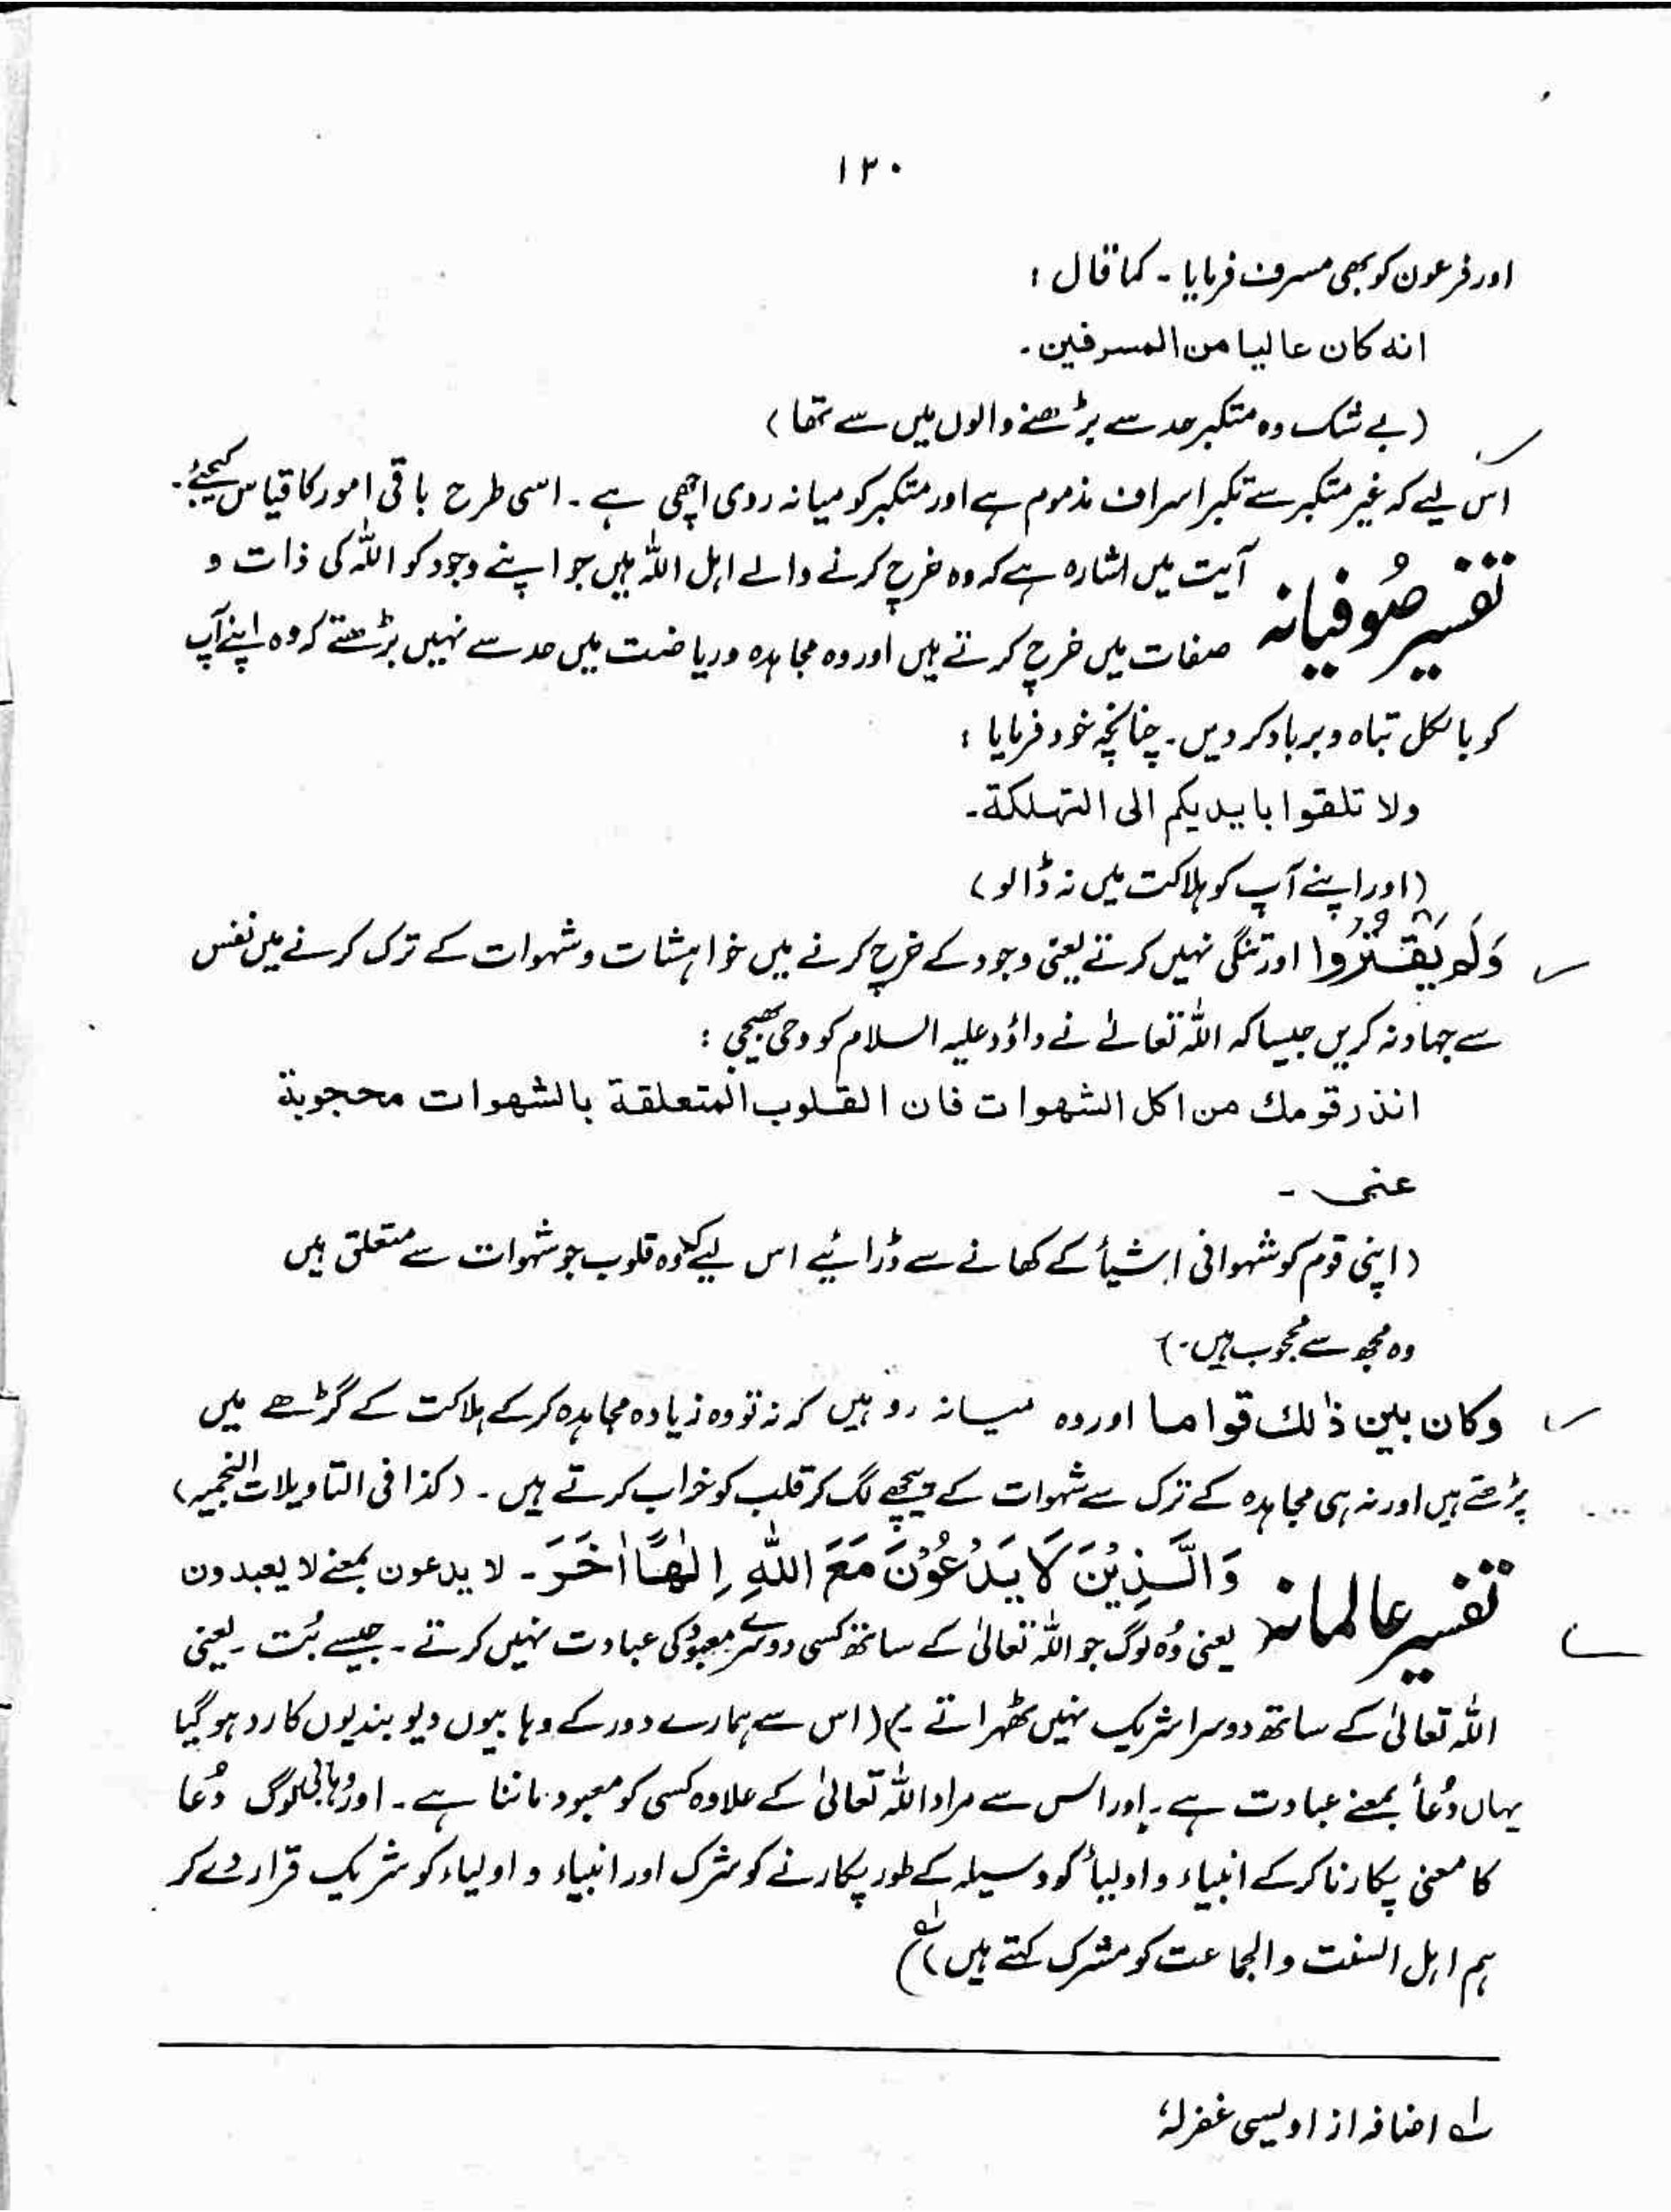 ۱۲۰
اور فرعون کو بھی مسرف فرمایا - کما قال :
انه کان عالیا من المسرفین -
(بے شک وہ متکبر حد سے بڑھنے والوں میں سے تھا)
اس لیے کہ غیر متکبر سے تکبر اسراف مذموم ہے اور متکبر کو میانہ روی اچھی ہے - اسی طرح باقی امور کا قیاس کیجئے -
تفسیر صُوفیانہ آیت میں اشارہ ہے کہ وہ خرچ کرنے والے اہل اللہ ہیں جو اپنے وجود کو اللہ کی ذات و
صفات میں خرچ کرتے ہیں اور وہ مجاہدہ و ریاضت میں حد سے نہیں بڑھتے کہ وہ اپنے آپ
کو بالکل تباہ و برباد کر دیں - چنانچہ خود فرمایا :
ولا تلقوا بایدیکم الی التہلکة -
(اور اپنے آپ کو ہلاکت میں نہ ڈالو)
وَلَمْ يَقْتُرُوا اور تنگی نہیں کرتے یعنی وجود کے خرچ کرنے میں خواہشات و شہوات کے ترک کرنے میں نفس
سے جہاد نہ کریں جیسا کہ اللہ تعالےٰ نے داؤد علیہ السلام کو وحی بھیجی :
انذر قومك من اكل الشهوات فان القلوب المتعلقة بالشهوات محجوبة
عنی -
(اپنی قوم کو شہوانی اشیأ کے کھانے سے ڈرائیے اس لیے کہ وہ قلوب جو شہوات سے متعلق ہیں
وہ مجھ سے محجوب ہیں -)
وکان بین ذٰلك قواما اور وہ میانہ رو ہیں کہ نہ تو وہ زیادہ مجاہدہ کر کے ہلاکت کے گڑھے میں
پڑتے ہیں اور نہ ہی مجاہدہ کے ترک سے شہوات کے پیچھے لگ کر قلب کو خراب کرتے ہیں - (کذا فی التاویلات النجمیہ)
تفسیر عالمانہ وَالَّذِيْنَ لَا يَدْعُوْنَ مَعَ اللّٰهِ اِلٰهًا اٰخَرَ - لا یدعون بمعنے لا یعبدون
یعنی وُہ لوگ جو اللہ تعالیٰ کے ساتھ کسی دوسرے معبود کی عبادت نہیں کرتے - جیسے بُت - یعنی
اللہ تعالیٰ کے ساتھ دوسرا شریک نہیں ٹھہراتے - (اس سے ہمارے دور کے وہابیوں دیوبندیوں کا رد ہو گیا
یہاں دُعأ بمعنے عبادت ہے - اور اس سے مراد اللہ تعالیٰ کے علاوہ کسی کو معبود ماننا ہے - اور وہابی لوگ دُعا
کا معنی پکارنا کر کے انبیاء و اولیأ کو وسیلہ کے طور پکارنے کو شرک اور انبیاء و اولیاء کو شریک قرار دے کر
ہم اہل السنت والجماعت کو مشرک کہتے ہیں)لہ
لہ اضافہ از اویسی غفرلہٗ